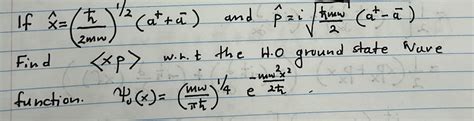 If x̂ = (ħ/2mω)^1/2 (a⁺ + a⁻) and p̂ = i √(ħmω/2) (a⁺ − a⁻)
Find <xp> w.r.t the H.O ground state Wave
function. Ψ₀(x) = (mω/πħ)^1/4 e^(−mω²x²/2ħ).